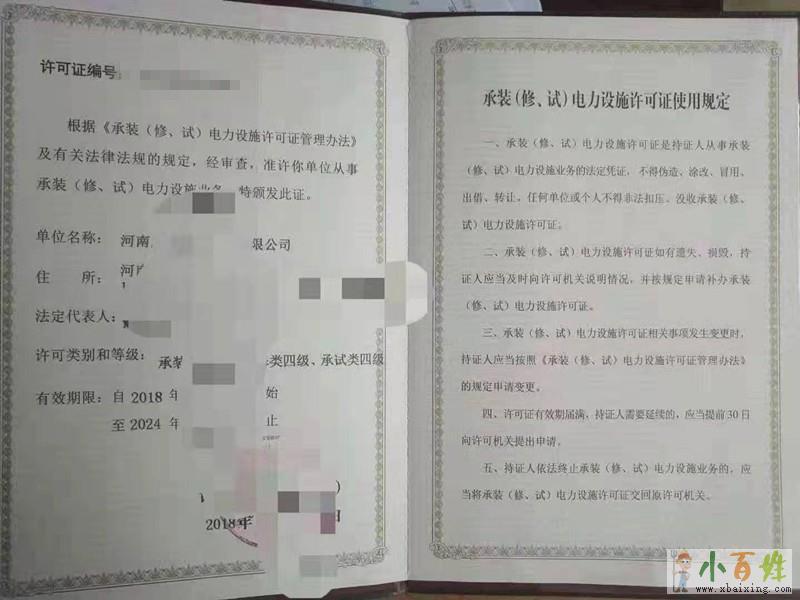 许可证编号:
根据《承装（修、试）电力设施许可证管理办法》
及有关法律法规的规定，经审查，准许你单位从事
承装（修、试）电力设施业务，特颁发此证。
单位名称： 河南 限公司
住 所：
法定代表人：
许可类别和等级： 承装 类四级、承试类四级
有效期限：自 2018 年 始
至 2024 年 止
2018年 日
承装（修、试）电力设施许可证使用规定
一、承装（修、试）电力设施许可证是持证人从事承装
（修、试）电力设施业务的法定凭证，不得伪造、涂改、冒用、
出借、转让，任何单位或个人不得非法扣压、没收承装（修、
试）电力设施许可证。
二、承装（修、试）电力设施许可证如有遗失、损毁，持
证人应当及时向许可机关说明情况，并按规定申请补办承装
（修、试）电力设施许可证。
三、承装（修、试）电力设施许可证相关事项发生变更时，
持证人应当按照《承装（修、试）电力设施许可证管理办法》
的规定申请变更。
四、许可证有效期届满，持证人需要延续的，应当提前30日
向许可机关提出申请。
五、持证人依法终止承装（修、试）电力设施业务的，应
当将承装（修、试）电力设施许可证交回原许可机关。
小百姓
www.xbaixing.com